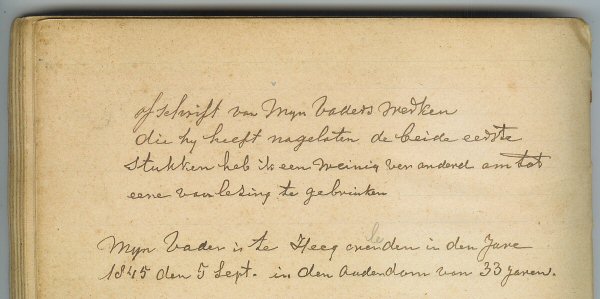 afschrift van Mijn Vaders Werken
die hy heeft nagelaten de beide eerste
Stukken heb ik een Weinig veranderd om tot
eene voorlezing te gebruiken
Mijn Vader is te Heeg overleden in den Jare
1845 den 5 Sept. in den ouderdom van 33 jaren.